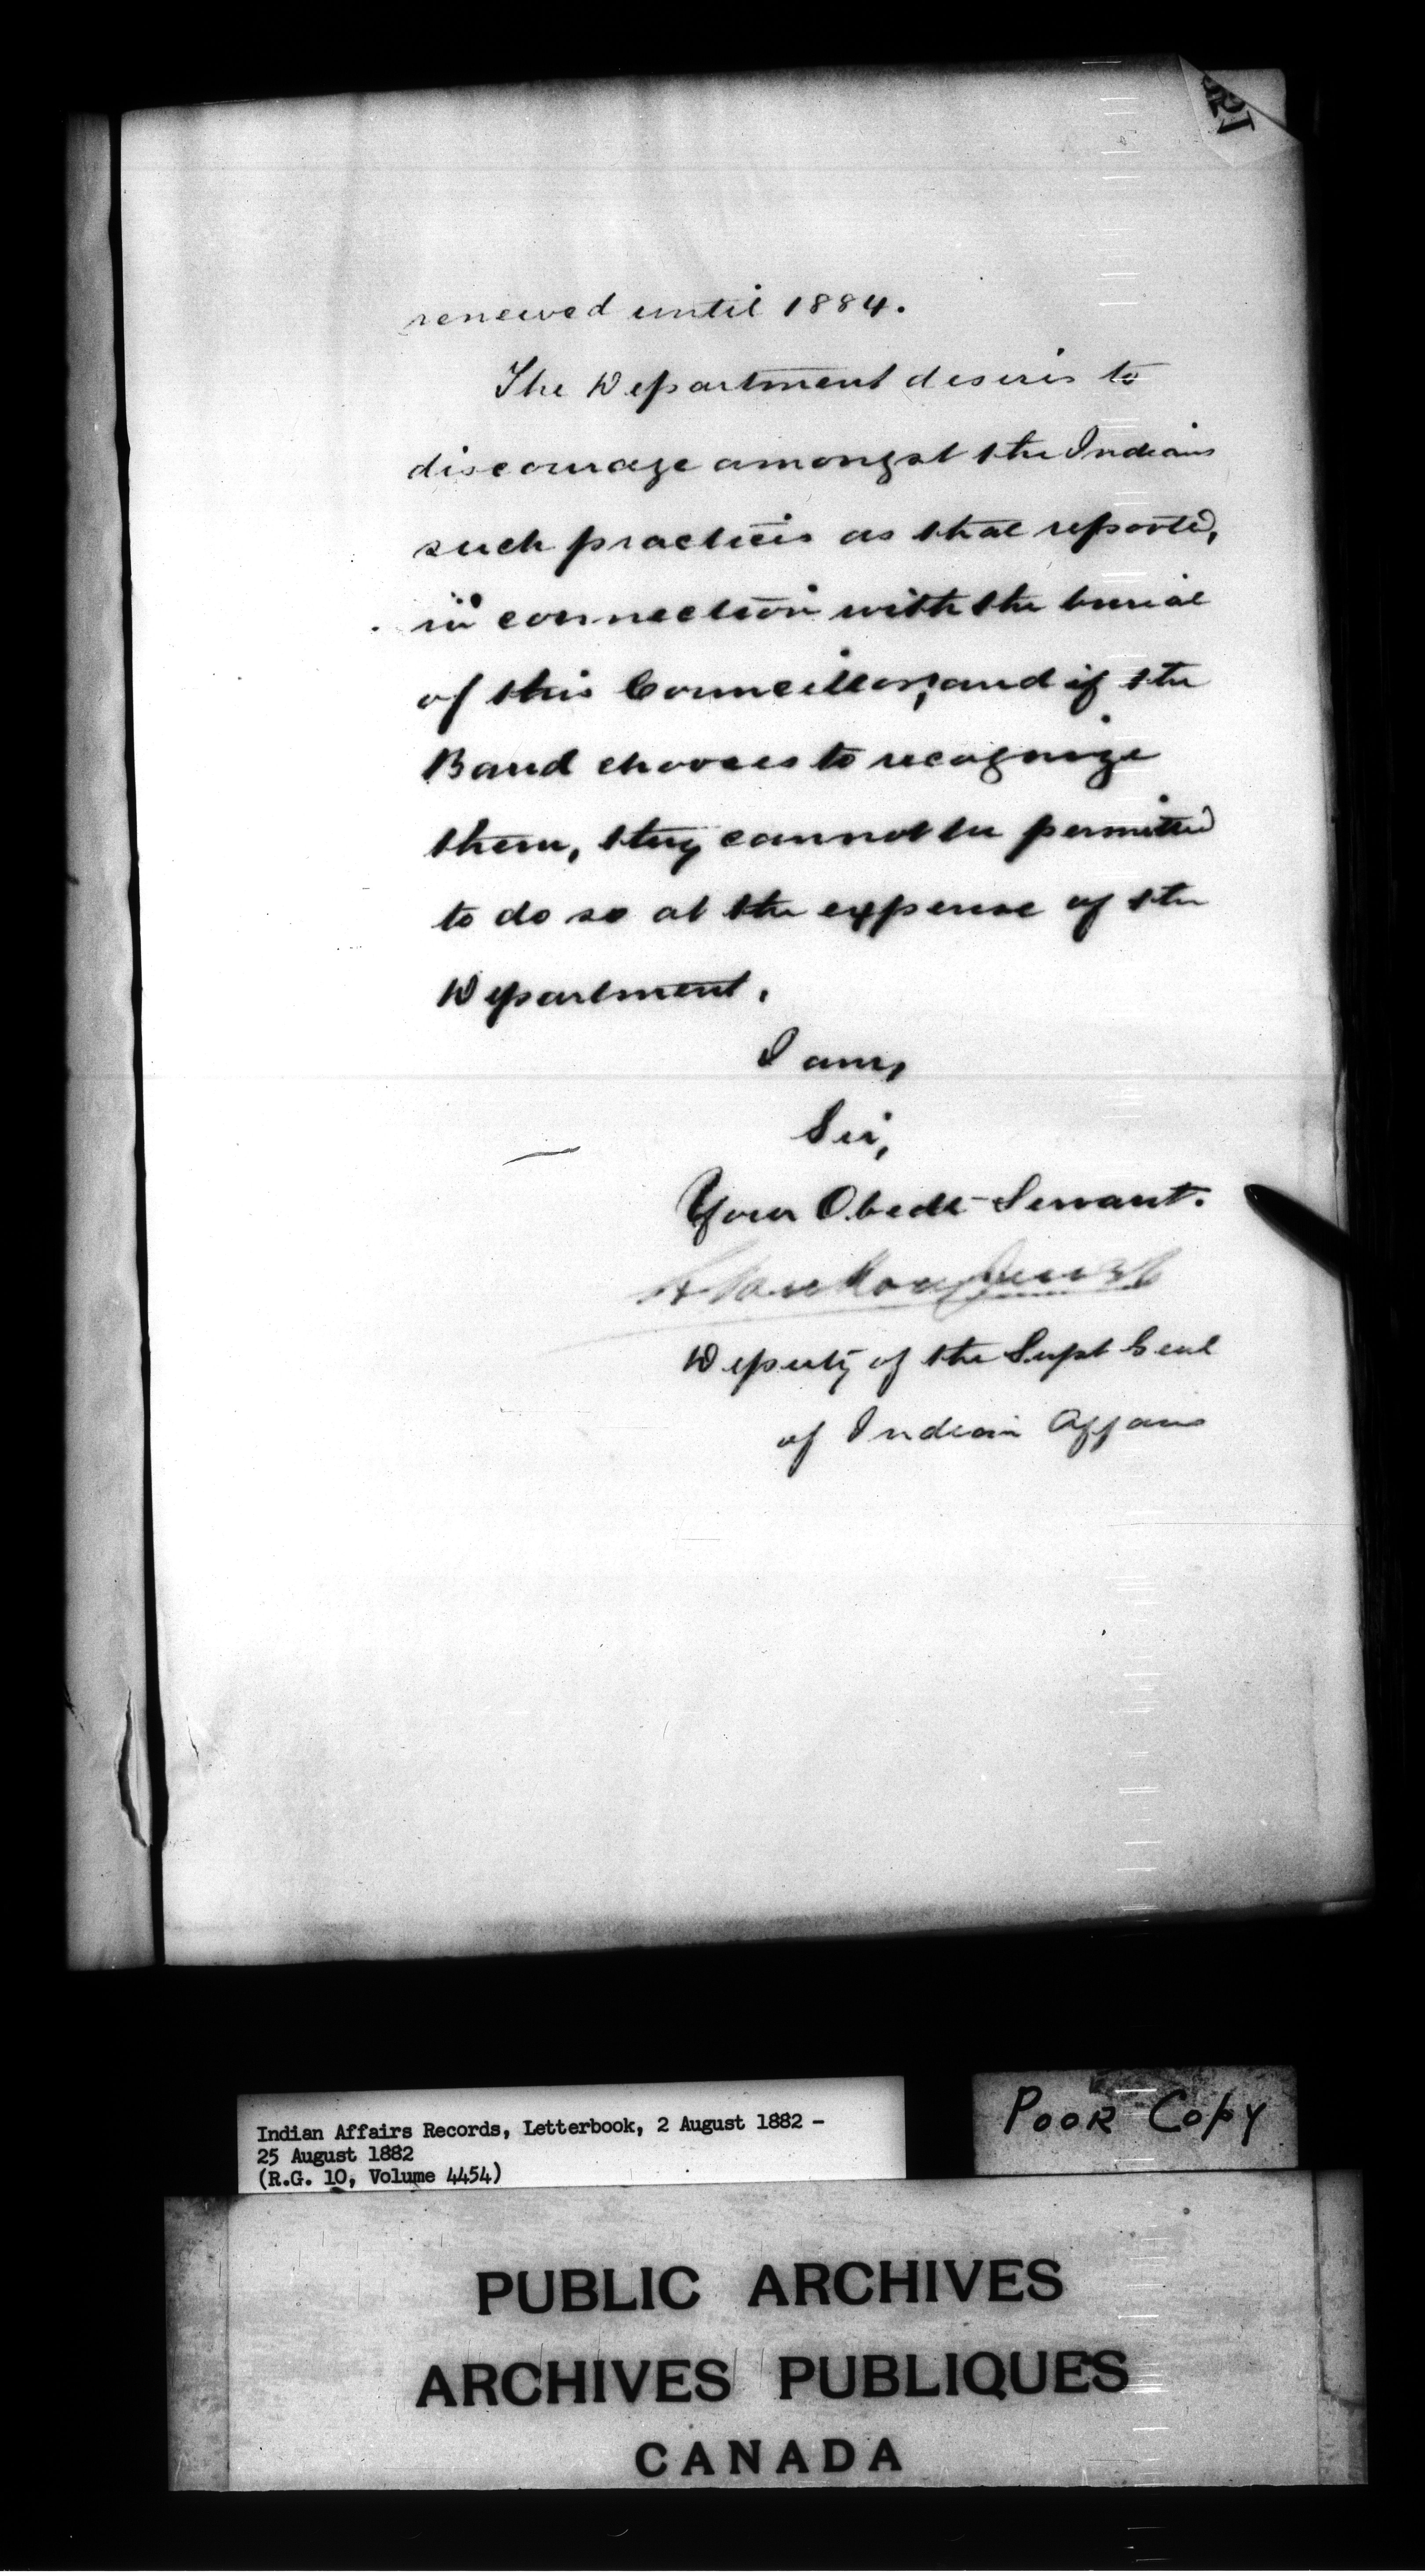 renewed until 1884.
The Department desires to
discourage amongst the Indians
such practices as that reported,
in connection with the burial
of this Councillor, and if the
Band chooses to recognize
them, they cannot be permitted
to do so at the expense of the
Department.
I am,
Sir,
Your Obedt Servant.
Deputy of the Supt Genl
of Indian Affairs
Indian Affairs Records, Letterbook, 2 August 1882 -
25 August 1882
(R.G. 10, Volume 4454)
POOR COPY
PUBLIC ARCHIVES
ARCHIVES PUBLIQUES
CANADA